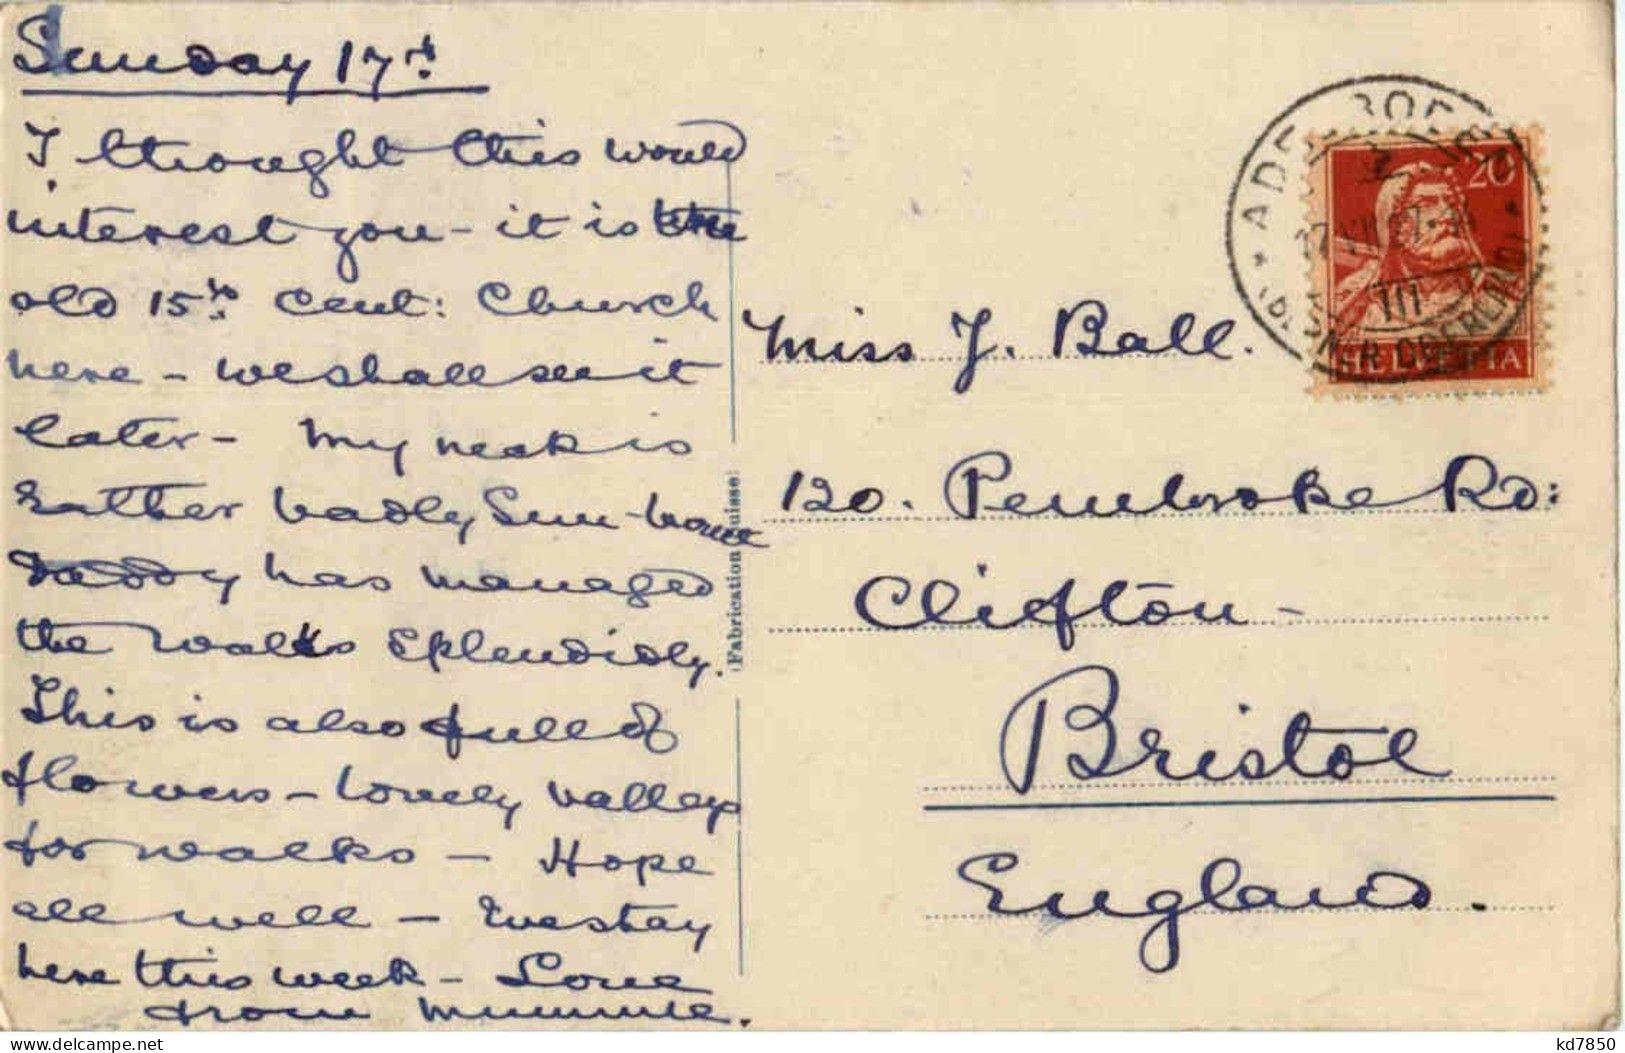 Sunday 17th
I thought this would
interest you - it is the
old 15th Cent: Church
here - we shall see it
later - My neck is
rather badly Sun-burnt
Daddy has managed
the walks splendidly.
This is also full of
flowers - lovely valleys
for walks - Hope
all well - We stay
here this week - Love
from Mummie.
(Fabrication Suisse)
Miss J. Ball.
120. Pembroke Rd:
Clifton -
Bristol
England.
20
HELVETIA
ADELBODEN
III
(BERNER OBERLAND)
delcampe.net
kd7850